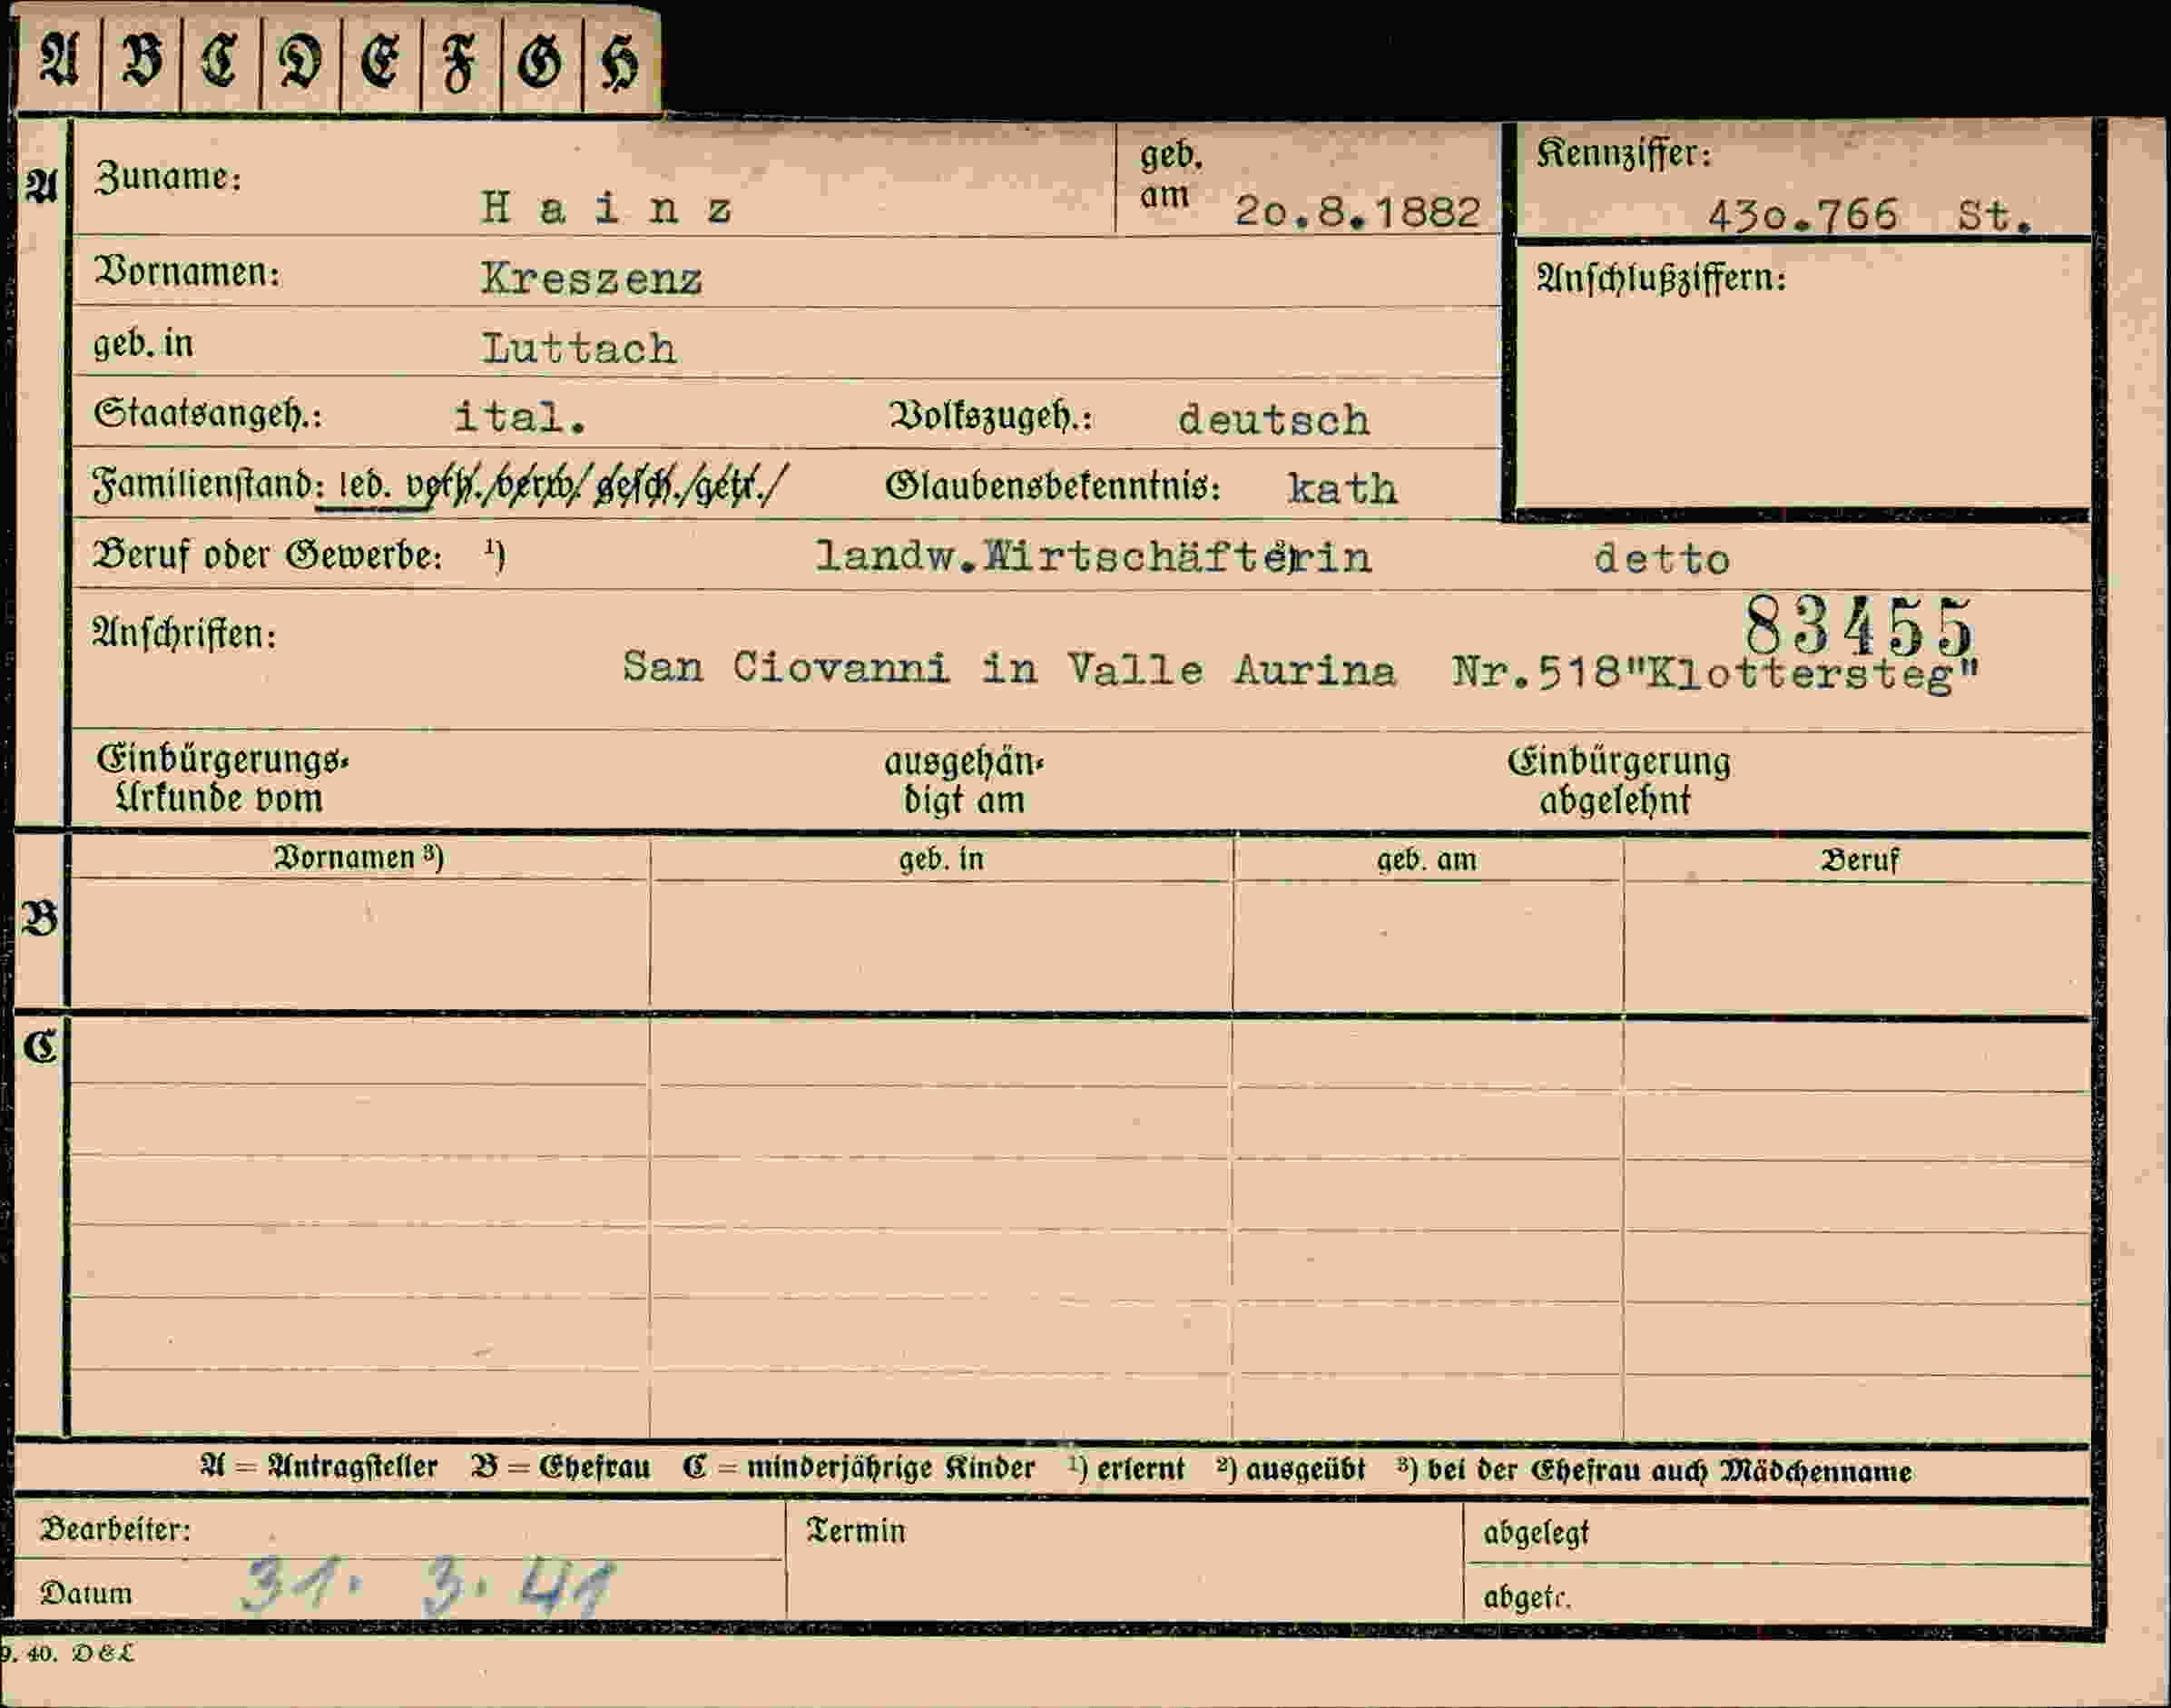 A B C D E F G H
A Zuname: Hainz geb. am 20.8.1882 Kennziffer: 430.766 St.
Vornamen: Kreszenz Anschlußziffern:
geb. in Luttach
Staatsangeh.: ital. Volkszugeh.: deutsch
Familienstand: led. verh./verw/ gesch./getr./ Glaubensbekenntnis: kath
Beruf oder Gewerbe: ¹) landw.Wirtschäfterin detto
83455
Anschriften: San Ciovanni in Valle Aurina Nr.518"Klottersteg"
Einbürgerungs-
Urkunde vom
ausgehän-
digt am
Einbürgerung
abgelehnt
B Vornamen ³) geb. in geb. am Beruf
C
A = Antragsteller B = Ehefrau C = minderjährige Kinder ¹) erlernt ²) ausgeübt ³) bei der Ehefrau auch Mädchenname
Bearbeiter: Termin abgelegt
Datum 31. 3. 41 abgetr.
9. 40. D&L